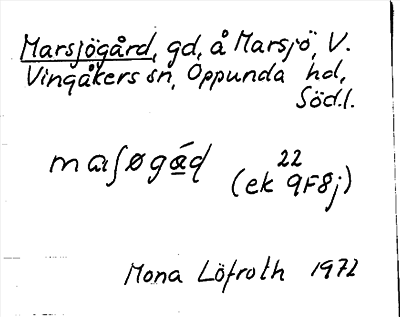 Marsjögård, gd, å Marsjö, V.
Vingåkers sn, Oppunda hd,
Södl.
maʃøgá̱d
22
(ek 9F8j)
Mona Löfroth 1972